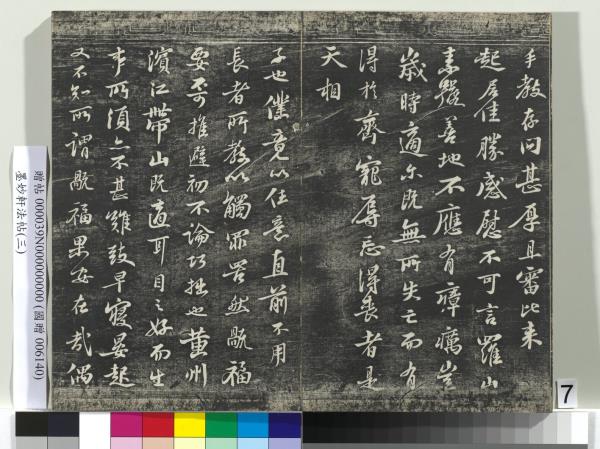 手教存问甚厚且審比来
起居佳勝感慰不可言羅山
素號善地不應有瘴癘豈
歲時適尔既無所失亡而有
得於齊寵辱忘得喪者是
天相
子也僕竟以任意直前不用
長者所教以觸罪罟然禍福
要不可推避初不論巧拙也黄州
濱江帶山既適耳目之好而生
事所須亦不甚難致早寝晏起
又不知所謂禍福果安在哉偶
贈帖 000039N000000000 (國贈 006140)
墨妙軒法帖(三)
7